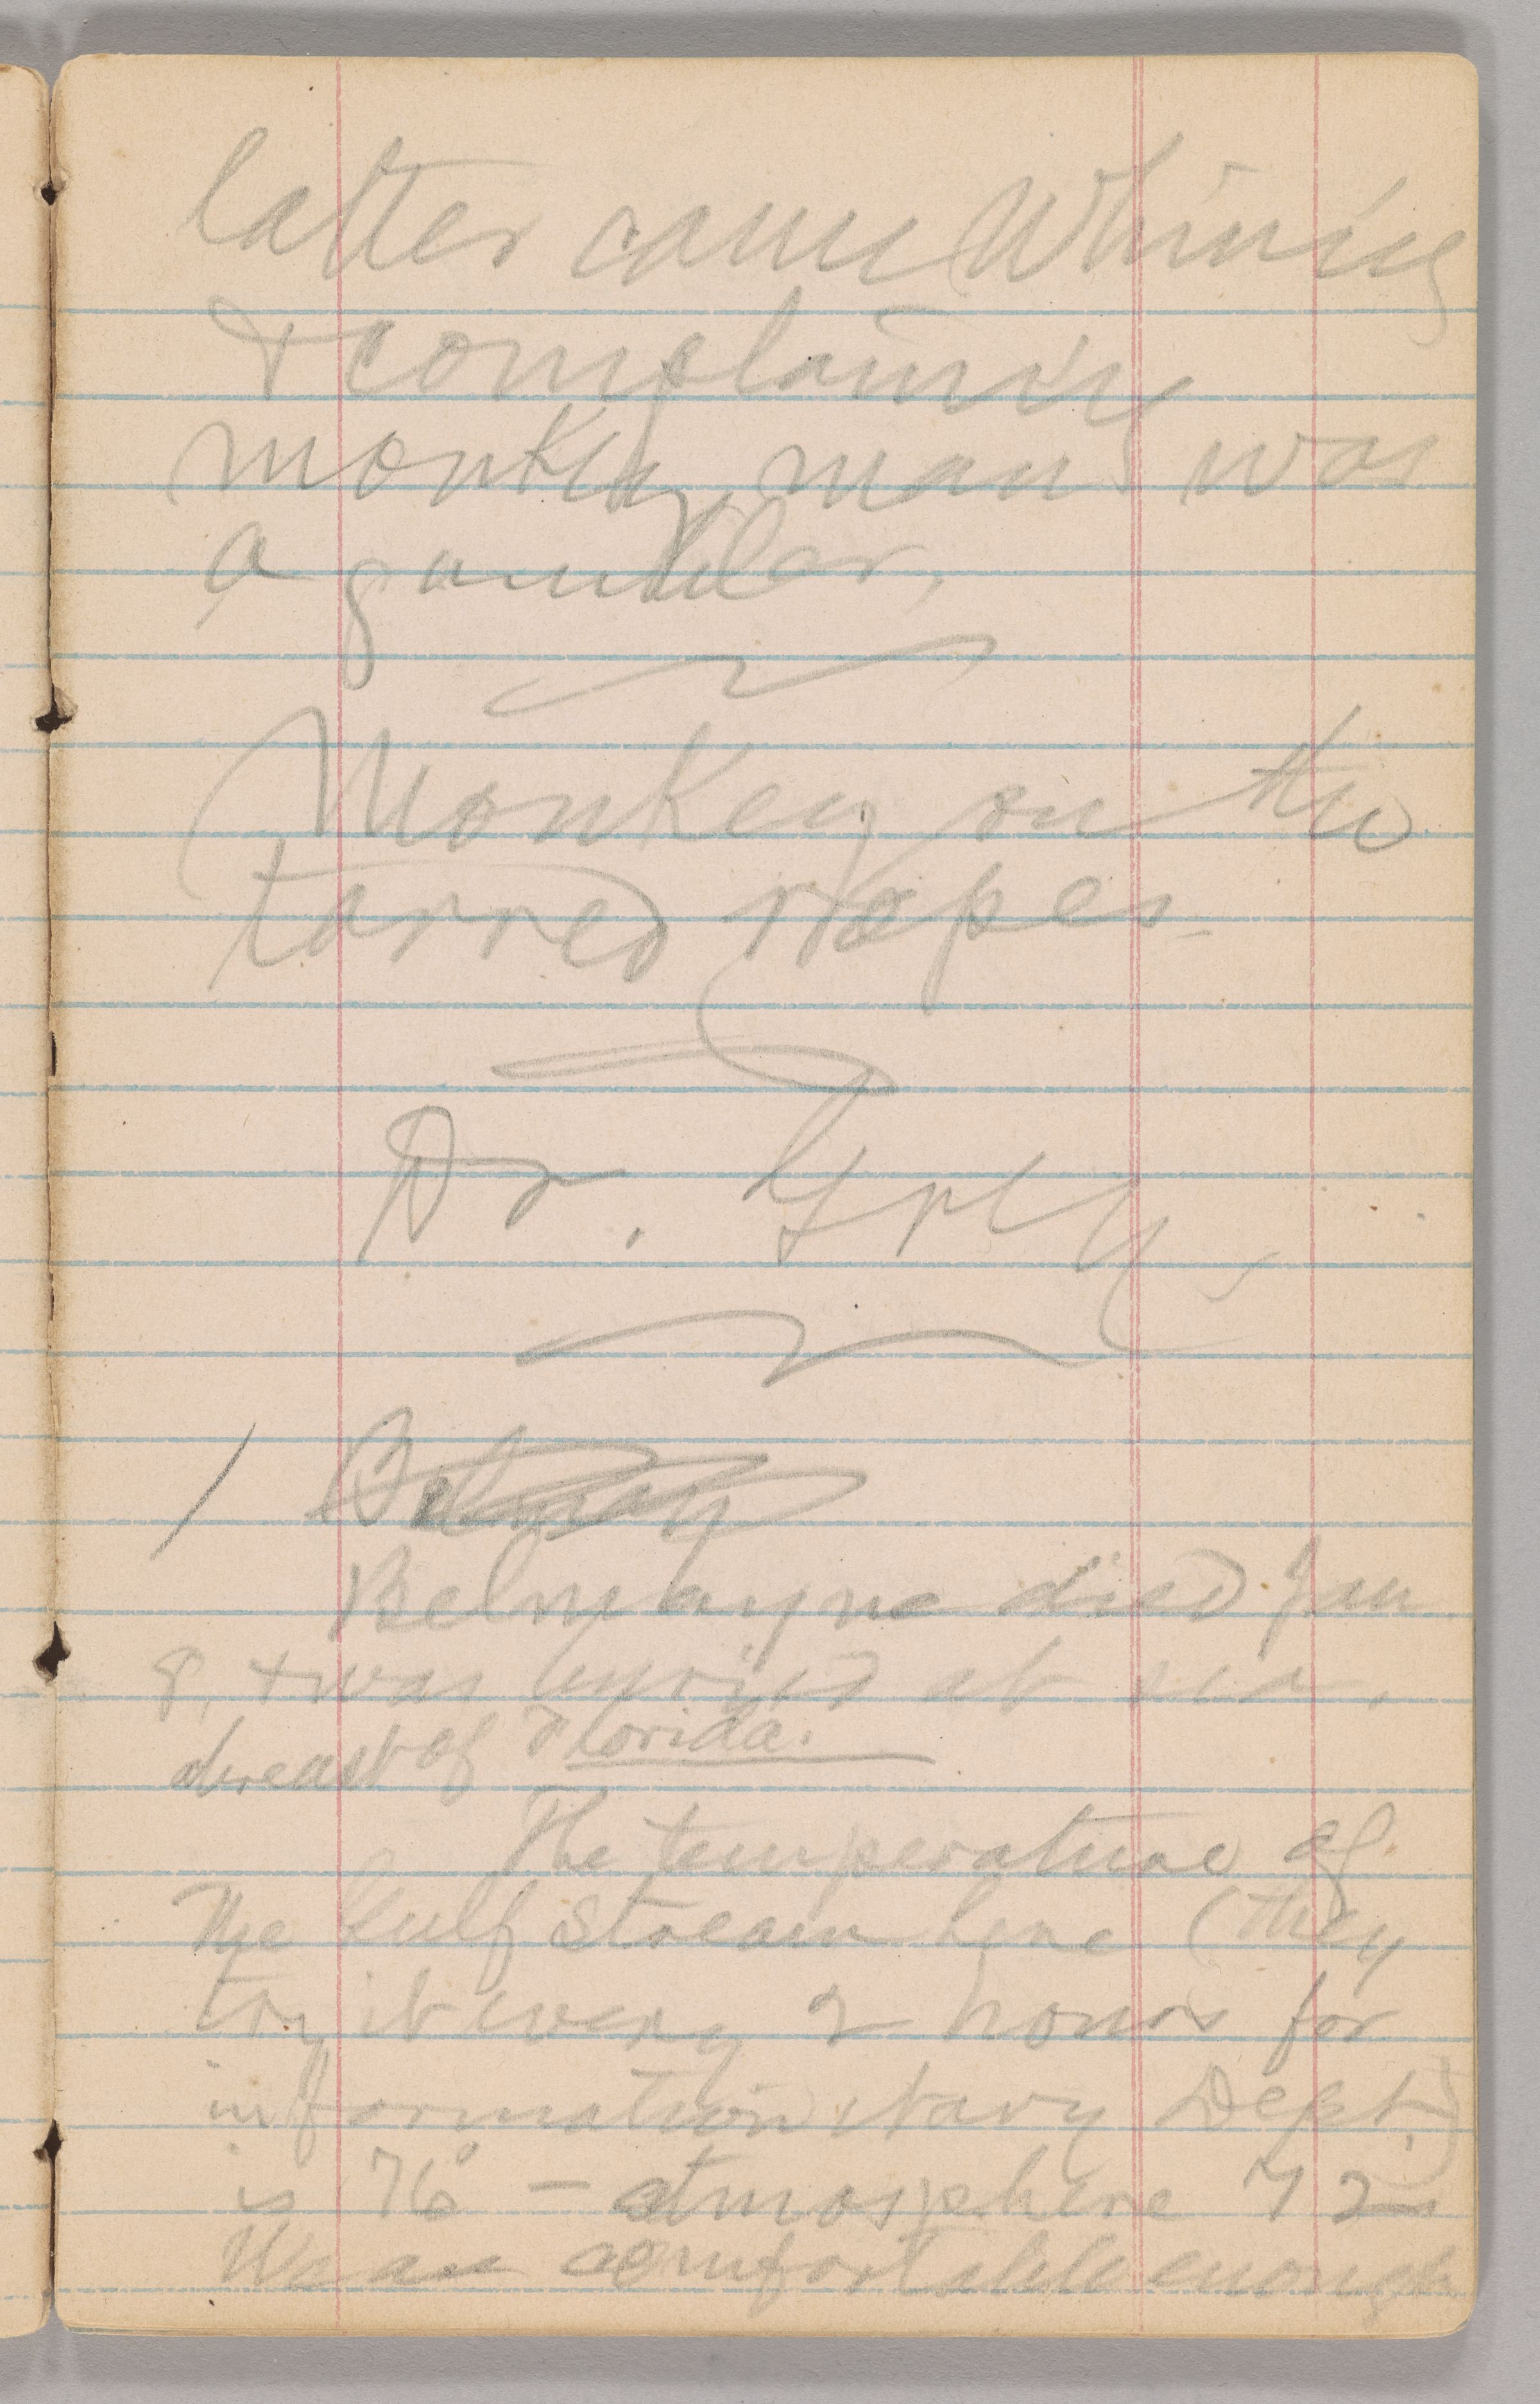 latter came Whining
& complaining
monkey man was
a gambler.
Monkey on the
tarred ropes.
Dr.
Belmayne died Jan
8, & was buried at sea,
abreast of Florida.
The temperature of
The Gulf Stream here (they
try it every 2 hours for
information Navy Dept.)
is 76° — atmosphere 72
We are comfortable enough